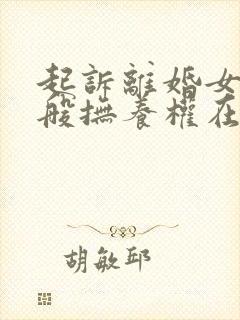 起訴離婚女
般撫養權在
胡敏邱